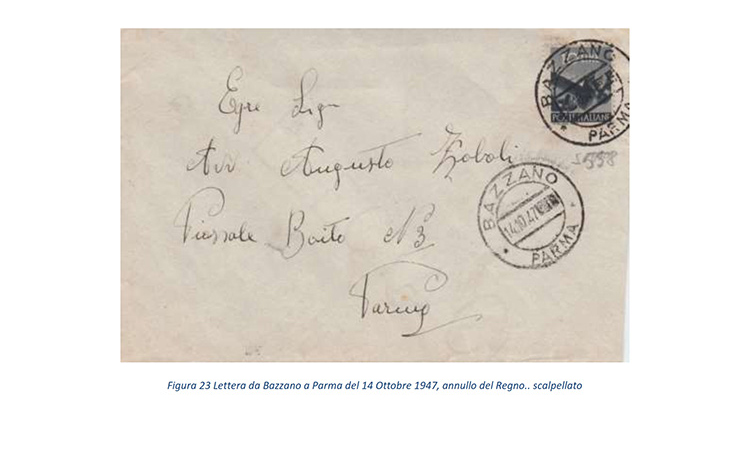 BAZZANO
POSTE ITALIANE
* PARMA
Egre Sign
Avv Augusto Zoboli
S.558
BAZZANO
14.10.47
* PARMA
Piazzale Boito N 3
Parma
Figura 23 Lettera da Bazzano a Parma del 14 Ottobre 1947, annullo del Regno.. scalpellato